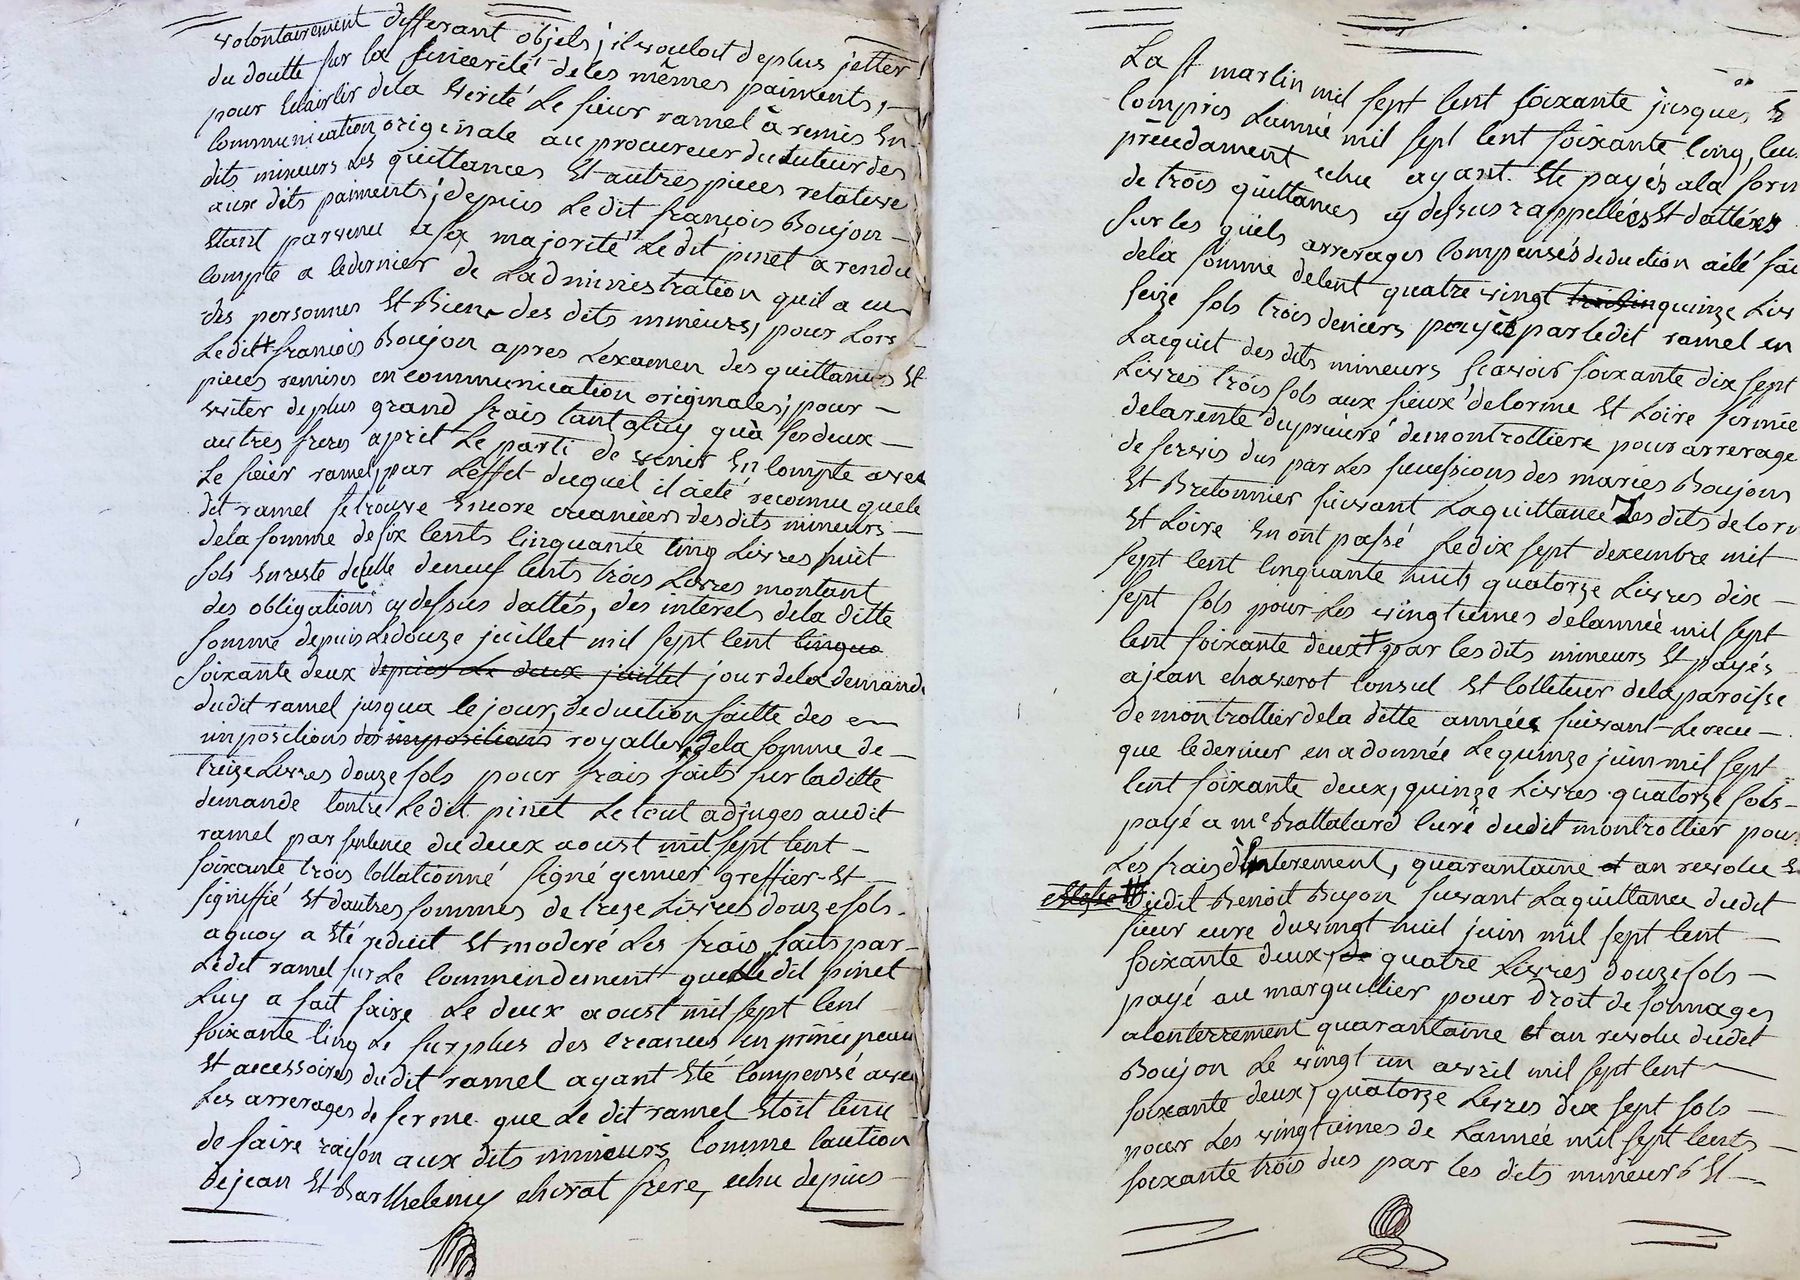 volontairement differant objets; il vouloit deplus jetter
du doutte sur la sincerité de les mêmes paiments,
pour leclaircir dela verité Le sieur ramel à remis En
communication originale au procureur du tuteur des
dits mineurs Les quittances Et autres pieces relative
aux dits paiments; depuis Ledit françois Boujon
Etant parvenu a sa majorité Le dit pinet a rendu
compte a ledernier de Ladministration quil a eu
des personnes Et Biens des dits mineurs, pour Lors
Ledit françois Boujon apres Lexamen des quittances Et
pieces remises en communication originales; pour
eviter deplus grand frais tant a luy quà ses deux
autres freres a prit Le parti de venir En compte avec
Le sieur ramel, par Leffet duquel il a été reconnu quele
dit ramel se trouve Encore creancier desdits mineurs
dela somme de six cents cinquante cinq Livres huit
sols En reste dicelle de neuf cents trois Livres montant
des obligations cy dessus dattés, des interets dela ditte
somme depuis Ledouze juillet mil sept cent cinqua
soixante deux depuis Le deux juillet jour dela demande
dudit ramel jusqua le jour, deduction faitte des
impositions des impositions royalles, dela somme de
treize Livres douze sols pour frais faits sur laditte
demande contre Ledit pinet Le tout adjuges audit
ramel par sentence du deux aoust mil sept cent
soixante trois collationné signé genier greffier Et
signiffié Et dautres sommes de treze Livres douze sols
aquoy a Eté reduit Et moderé Les frais faits par
Ledit ramel sur Le commendement que Ledit pinet
Luy a fait faire Le deux aoust mil sept cent
soixante cinq Le surplus des creances En principeau
Et accessoires dudit ramel ayant Eté compensé avec
Les arrerages de ferme que Le dit ramel Etoit tenu
de faire raison aux dits mineurs Comme Caution
de jean Et Barthelemy chirat frere, echu depuis
La st martin mil sept cent soixante jusques Et
compris Lannée mil sept cent soixante cinq,
précédament echu ayant Eté payés a la form
de trois quittances cy dessus rappellées Et dattées
sur les quels arrerages compensés deduction a été fai
dela somme de cent quatre vingt quinze Liv
seize sols trois deniers payés par ledit ramel en
Lacquit des dits mineurs scavoir soixante dix sept
Livres trois sols aux sieux delorme Et Loire fermie
de la rente du prieuré demontrottiere pour arrerage
de servis dus par Les successions des mariés Boujons
Et Bretonnier suivant La quittance des dits delorm
Et Loire En ont passé Le dix sept decembre mil
sept cent cinquante huit, quatorze Livres dix
sept sols pour Les vingtiemes delannée mil sept
cent soixante deux par lesdits mineurs Et payés
a jean chaverot Consul Et Colleteur dela paroisse
demontrottier dela ditte année suivant Le recu
que ledernier en a donnée Le quinze juin mil sept
cent soixante deux, quinze Livres quatorze sols
payé a me Battalard curé dudit montrottier pour
Les frais dinterement, quarantaine et an revolu
dudit Benoit Bujon suivant La quittance dudit
sieur cure du vingt huit juin mil sept cent
soixante deux, de quatre Livres douze sols
payé au marguillier pour droit de sonnages
a lenterrement quarantaine Et an revolu dudit
Boujon Le vingt un avril mil sept cent
soixante deux, quatorze Livres dix sept sols
pour Les vingtiemes de Lannée mil sept cents
soixante trois dus par les dits mineurs Et